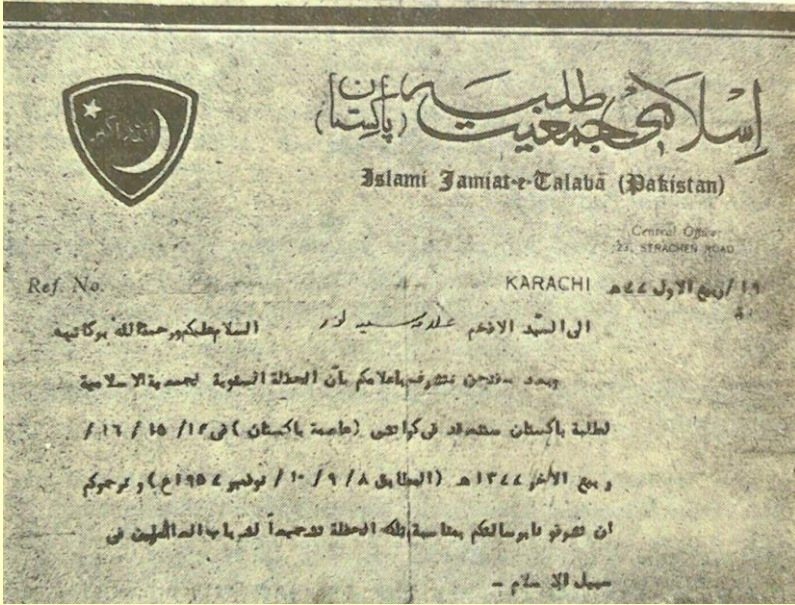 الله اکبر
اسلامی جمعیت طلبہ (پاکستان)
Islami Jamiat-e-Talaba (Pakistan)
Central Office:
23, STRACHEN ROAD
Ref No. KARACHI ١٩/ربيع الاول ٤٤ھ
الى السيد الافخم السلام عليكم ورحمة الله وبركاته
وبعد فنحن نتشرف باعلامكم بأن الحفلة السنوية لجمعية الاسلامية
لطلبة باكستان ستنعقد في كراتشي (عاصمة باكستان) في ١٤/ ١٥/ ١٦/
ربيع الأخر ١٣٤٤ھ (المطابق ٨/ ٩/ ١٠/ نوفمبر ١٩٥٤ع) و نرجوكم
ان تشرفونا برسالتكم بمناسبة تلك الحفلة تشجيعاً لشباب العاملين في
سبيل الاسلام -